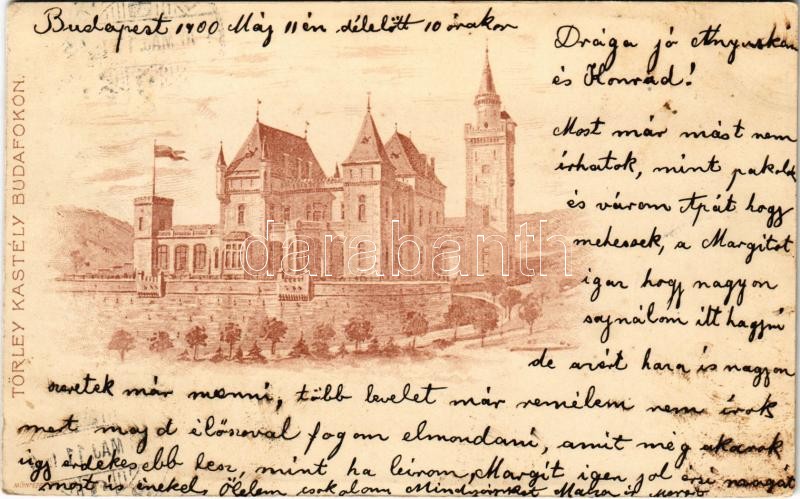 Budapest 1900 Máj 11én délelőtt 10 órakor
Drága jó Anyuskám
és Konrád!
Most már mást nem
írhatok, mint pakolok
és várom Apát hogy
mehessek, a Margitot
igaz hogy nagyon
sajnálom itt hagyni
de azért haza is nagyon
szeretek már menni, több levelet már remélem nem írok
mert majd élőszóval fogom elmondani, amit még akarok
így érdekesebb lesz, mint ha leírom, Margit igen jól érzi magát
most is énekel. Ölelem csokolom Mindnyájukat
TÖRLEY KASTÉLY BUDAFOKON.
darabanth